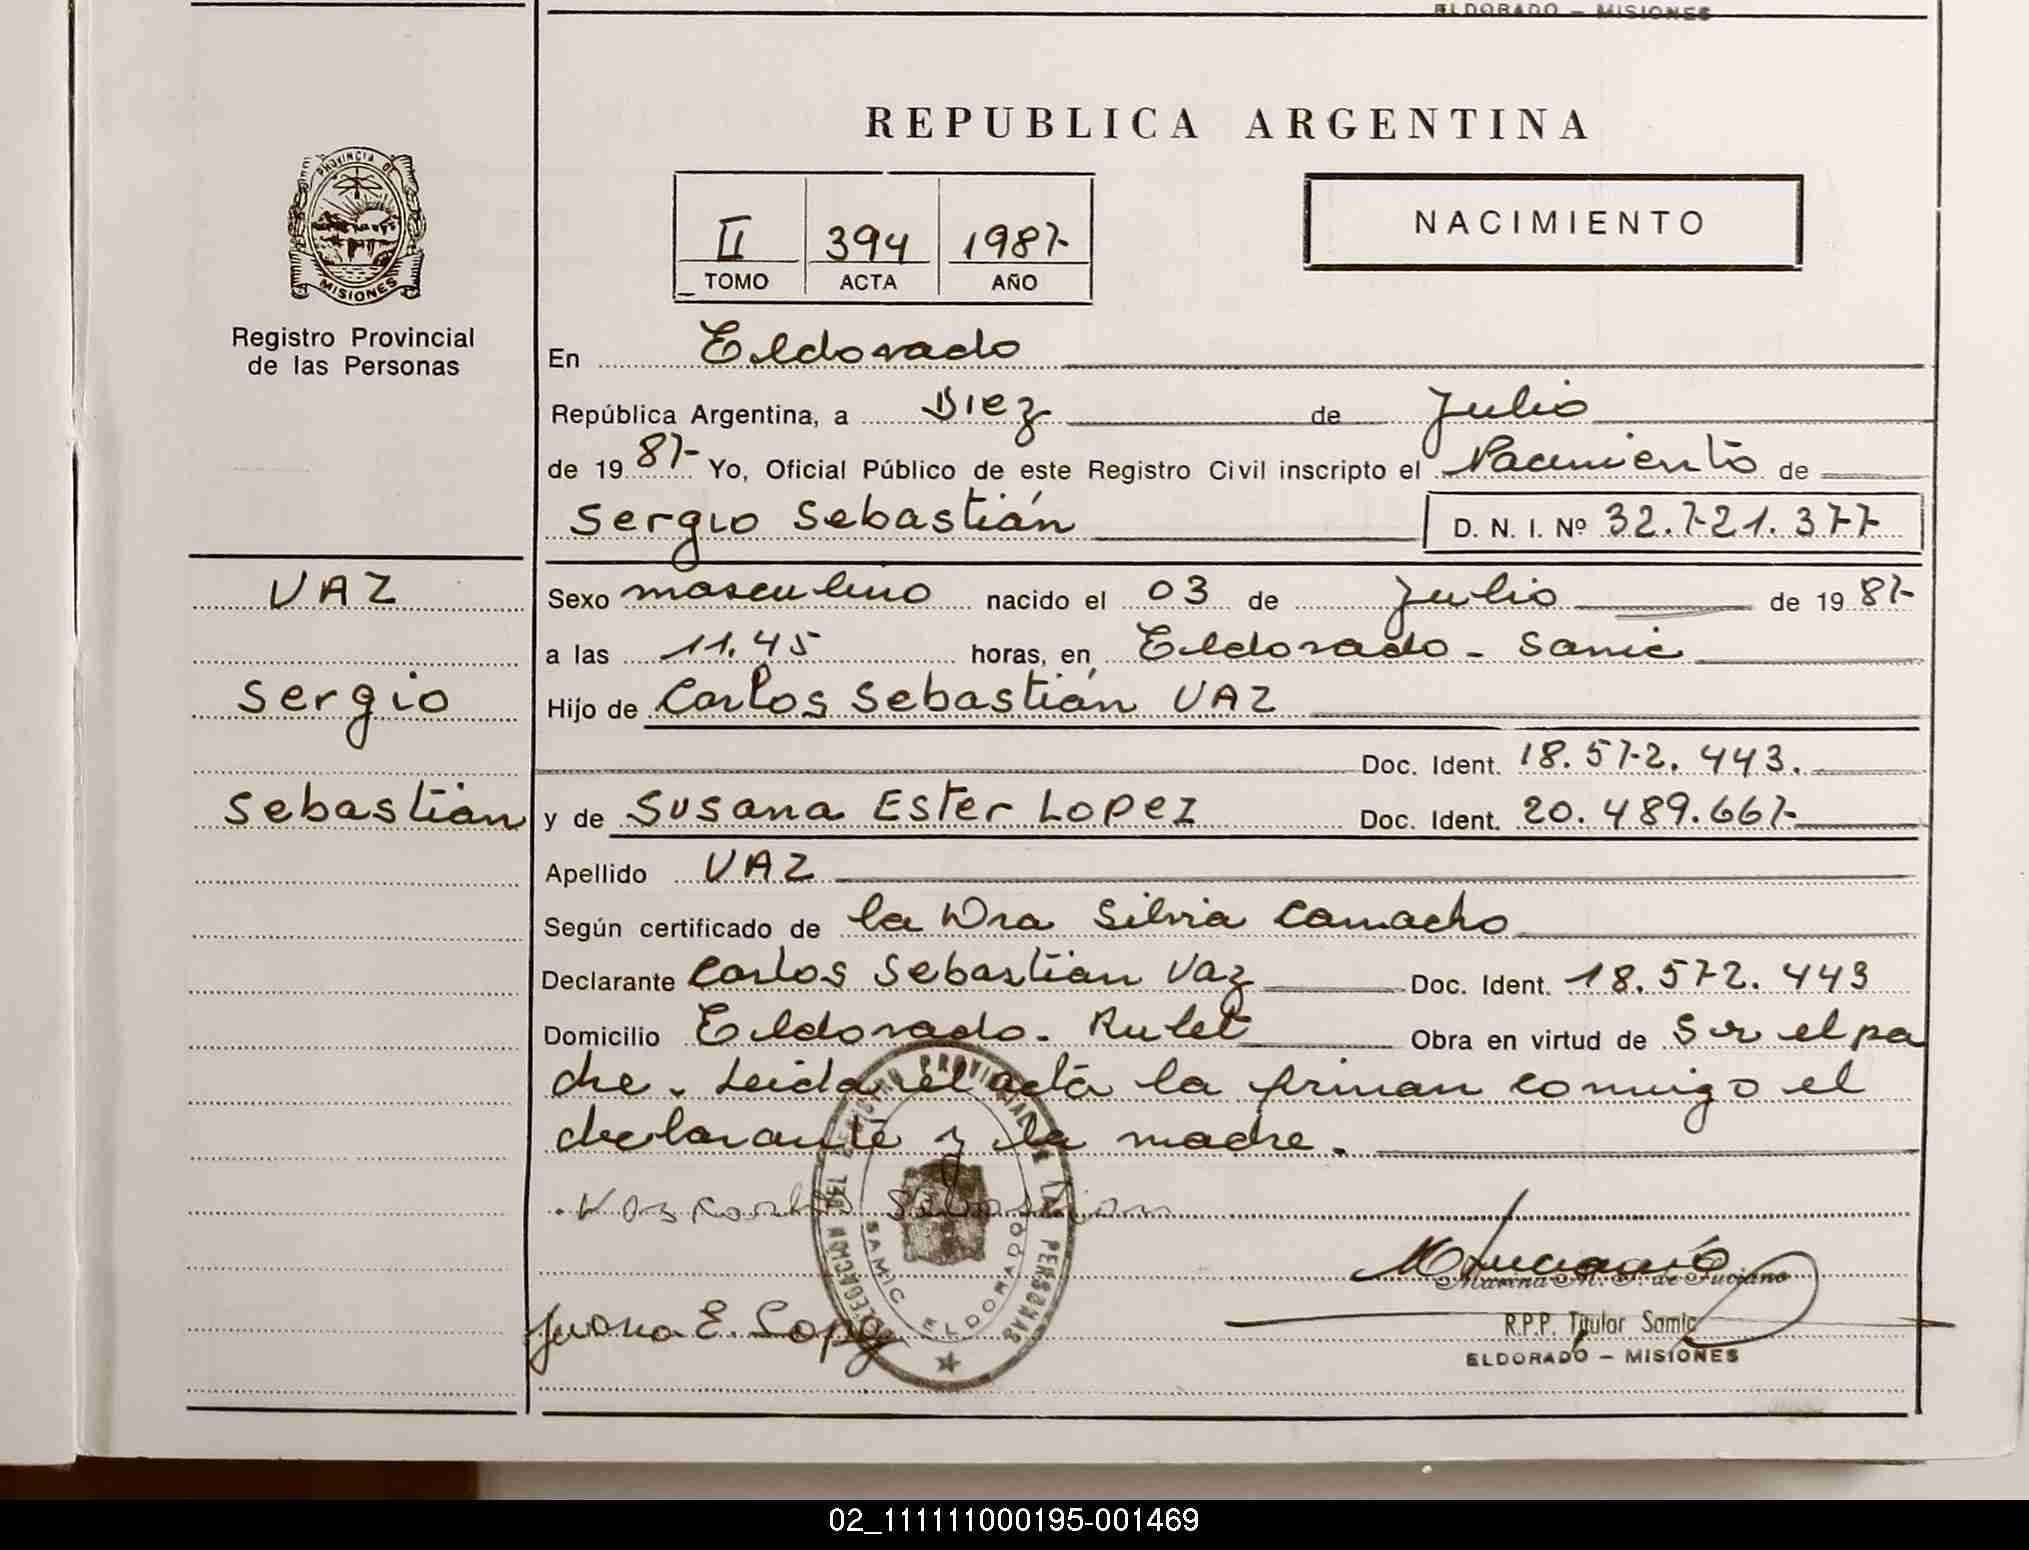 ELDORADO – MISIONES
REPUBLICA ARGENTINA
PROVINCIA DE
MISIONES
Registro Provincial
de las Personas
II 394 1987
TOMO ACTA AÑO
NACIMIENTO
En Eldorado
República Argentina, a Diez de Julio
de 1987 Yo, Oficial Público de este Registro Civil inscripto el Nacimiento de
Sergio Sebastián D. N. I. Nº 32.721.377
VAZ
Sergio
Sebastián
Sexo masculino nacido el 03 de Julio de 1987
a las 11.45 horas, en Eldorado - Samic
Hijo de Carlos Sebastián VAZ
Doc. Ident. 18.572.443.
y de Susana Ester Lopez Doc. Ident. 20.489.667
Apellido VAZ
Según certificado de la Dra Silvia Camacho
Declarante Carlos Sebastián Vaz Doc. Ident. 18.572.443
Domicilio Eldorado. Obra en virtud de Ser el pa
dre. Leida el acta la firman conmigo el
declarante y la madre.
Vaz Carlos Sebastian
REGISTRO PROVINCIAL DE LAS PERSONAS
SAMIC ELDORADO
Marina M. de Luciano
R.P.P. Titular Samic
ELDORADO – MISIONES
Susana E. Lopez
02_111111000195-001469